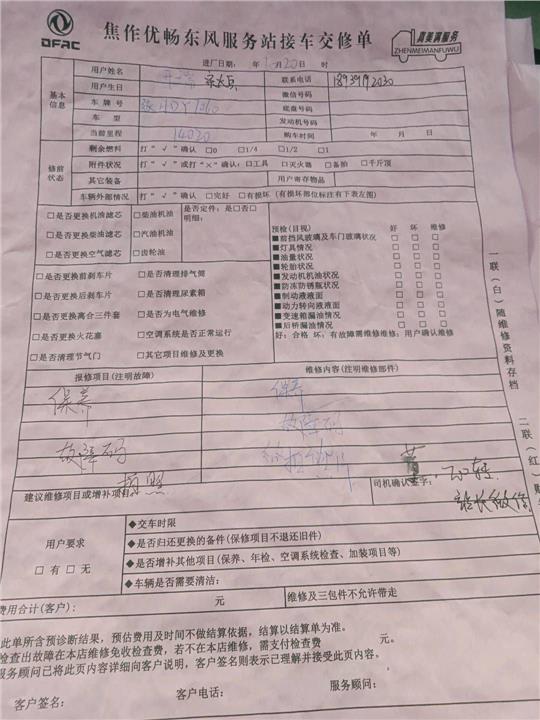 DFAC
焦作优畅东风服务站接车交修单
真美满服务
ZHENMEIMANFUWU
进厂日期: 年 1 月 20 日 时
基本信息
用户姓名 联系电话
用户生日 微信号码
车牌号 底盘号码
车型 发动机号码
当前里程 14020 购车时间 年 月 日
修前状态
剩余燃料 打“√”确认 □0 □1/4 □1/2 □1
附件状况 打“√”或打“×”确认: □工具 □灭火器 □备胎 □千斤顶
其它装备 用户寄存物品
车辆外部情况 打“√”确认 □完好 □有损坏 (有损坏部位标注有下表左图)
□是否更换机油滤芯 □柴油机油 是否定件: 是□否□
明细:
□是否更换柴油滤芯 □汽油机油
□是否更换空气滤芯 □齿轮油
□是否更换前刹车片 □是否清理排气筒
□是否更换后刹车片 □是否清理尿素箱
□是否更换离合三件套 □是否为电气维修
□是否更换火花塞 □空调系统是否正常运行
□是否清理节气门 □其它项目维修及更换
预检(目视) 好 坏 维修
■前挡风玻璃及车门玻璃状况 □ □ □
■灯具情况 □ □ □
■油量状况 □ □ □
■轮胎状况 □ □ □
■发动机机油状况 □ □ □
■防冻防锈瓶状况 □ □ □
■制动液液面 □ □ □
■动力转向液液面 □ □ □
■变速箱漏油情况 □ □ □
■后桥漏油情况 □ □ □
好:合格 坏:有故障需维修维修: 用户确认维修
报修项目(注明故障) 维修内容(注明维修部件)
保养 保养
故障码 故障码
拍照
建议维修项目或增补项目:
司机确认签字:
用户要求
□有 □无
◆交车时限
◆是否归还更换的备件(保修项目不退还旧件)
◆是否增补其他项目(保养、年检、空调系统检查、加装项目等)
◆车辆是否需要清洁:
费用合计(客户): 元 维修及三包件不允许带走
此单所含预诊断结果,预估费用及时间不做结算依据,结算以结算单为准。
检查出故障在本店维修免收检查费,若不在本店维修,需支付检查费 元。
服务顾问已将此页内容详细向客户说明,客户签名则表示已理解并接受此页内容。
客户签名: 客户电话: 服务顾问:
一联(白)随维修资料存档
二联(红)